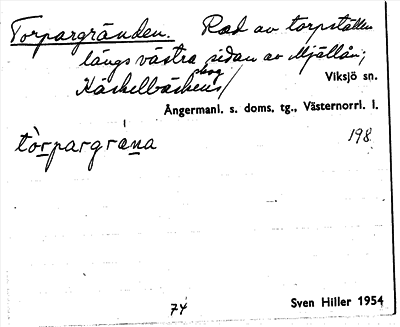 Torpargränden. Rad av torpställen
längs västra sidan av Mjällån;
skog
Häckelbäckens/
Viksjö sn.
Ångermanl. s. doms. tg., Västernorrl. l.
tòrpargrä́na
198
74
Sven Hiller 1954